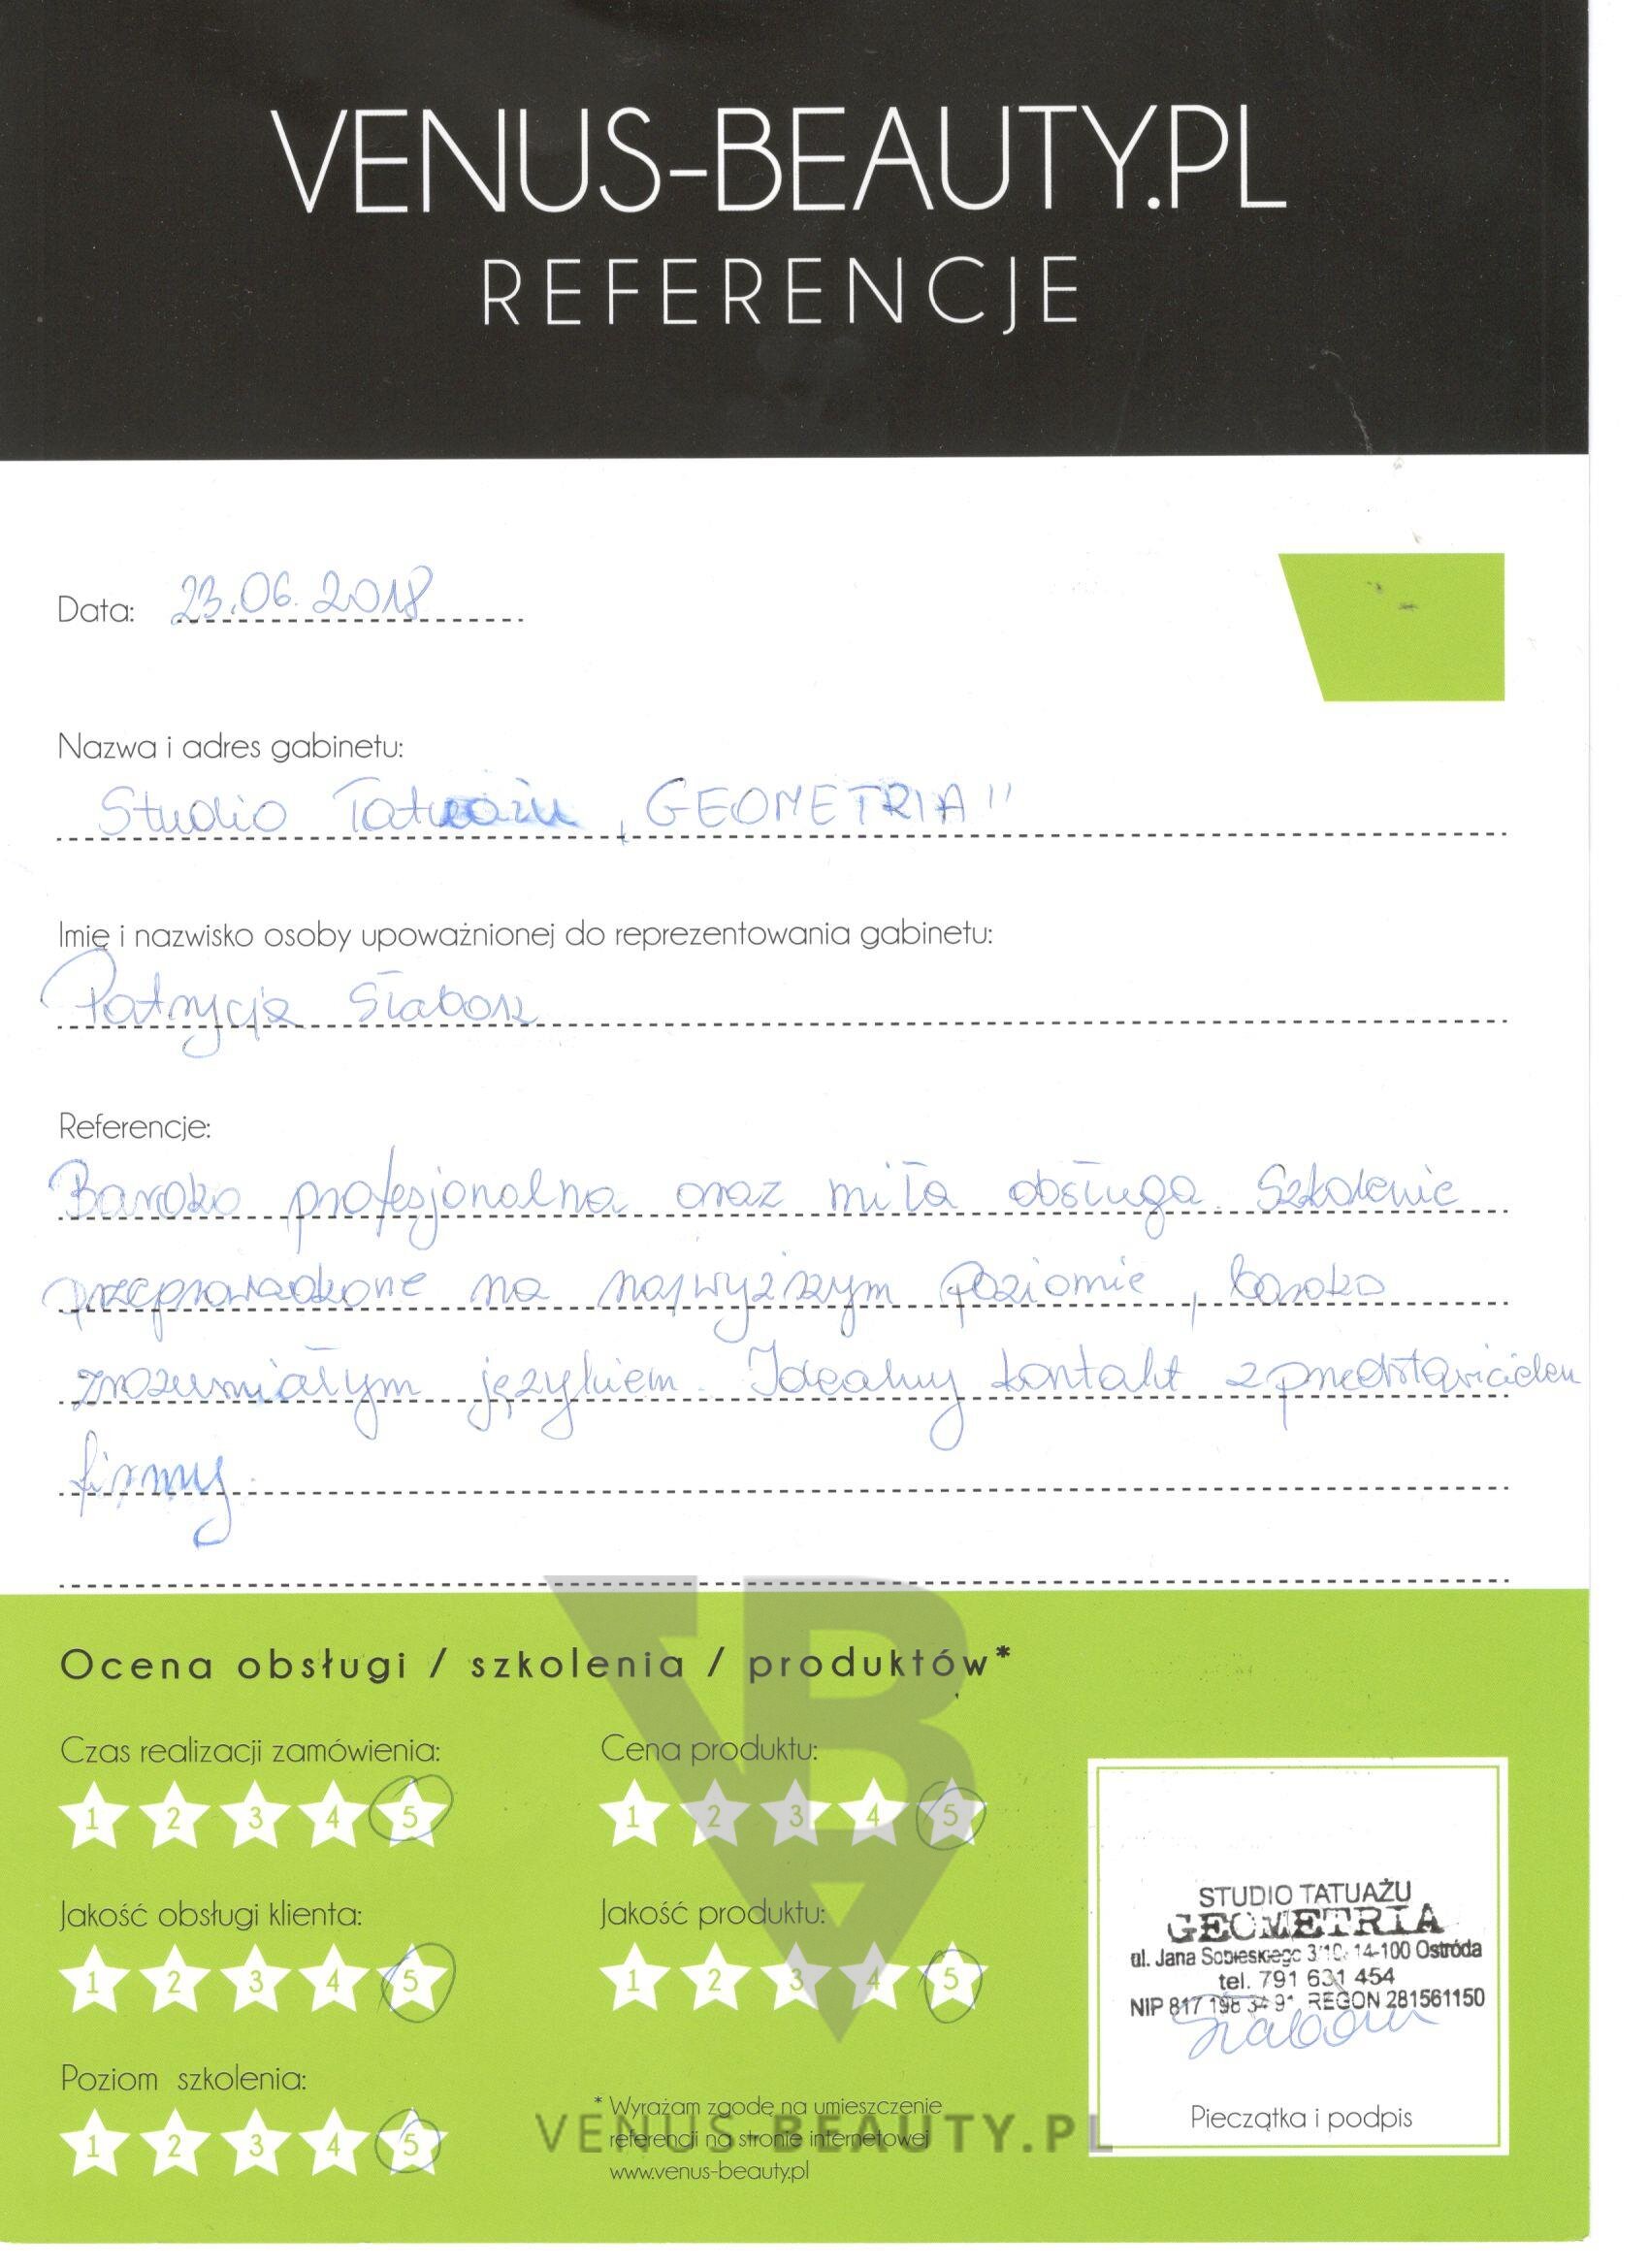 VENUS-BEAUTY.PL
REFERENCJE
Data: 23.06.2018
Nazwa i adres gabinetu:
Studio Tatuażu „GEOMETRIA"
Imię i nazwisko osoby upoważnionej do reprezentowania gabinetu:
Patrycja
Referencje:
Bardzo profesjonalna oraz miła obsługa. Szkolenie
przeprowadzone na najwyższym poziomie, bardzo
zrozumiałym językiem. Idealny kontakt z przedstawicielem
firmy.
Ocena obsługi / szkolenia / produktów*
Czas realizacji zamówienia: Cena produktu:
1 2 3 4 5 1 2 3 4 5
Jakość obsługi klienta: Jakość produktu:
1 2 3 4 5 1 2 3 4 5
Poziom szkolenia:
1 2 3 4 5
* Wyrażam zgodę na umieszczenie
referencji na stronie internetowej
www.venus-beauty.pl
VENUS-BEAUTY.PL
STUDIO TATUAŻU
GEOMETRIA
ul. Jana Sobieskiego 3/10, 14-100 Ostróda
tel. 791 631 454
NIP 817 198 REGON 281561150
Pieczątka i podpis